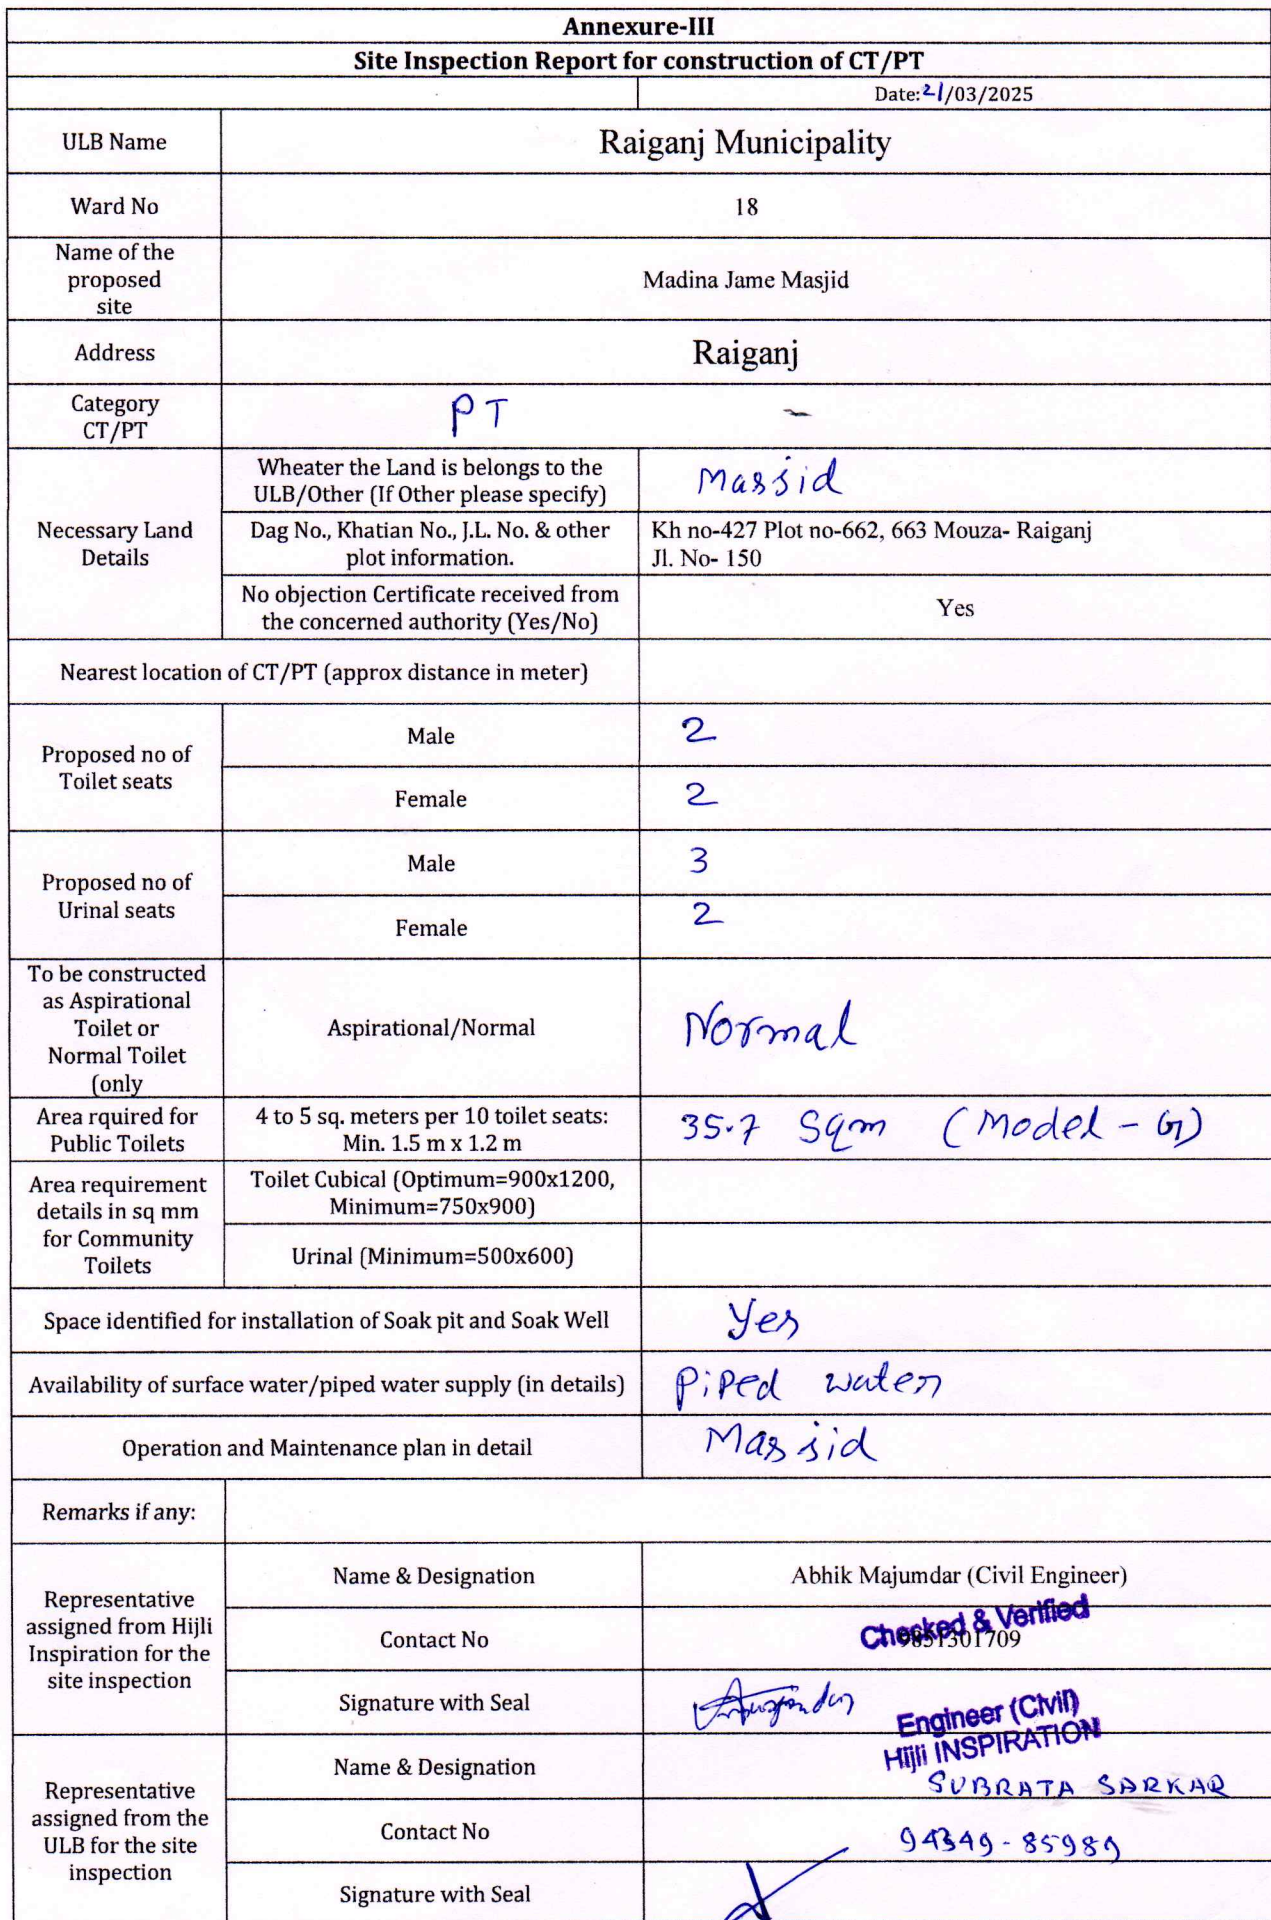 Annexure-III
Site Inspection Report for construction of CT/PT
Date: 21/03/2025
ULB Name
Raiganj Municipality
Ward No
18
Name of the
proposed
site
Madina Jame Masjid
Address
Raiganj
Category
CT/PT
PT
-
Necessary Land
Details
Wheater the Land is belongs to the
ULB/Other (If Other please specify)
Massid
Dag No., Khatian No., J.L. No. & other
plot information.
Kh no-427 Plot no-662, 663 Mouza- Raiganj
Jl. No- 150
No objection Certificate received from
the concerned authority (Yes/No)
Yes
Nearest location of CT/PT (approx distance in meter)
Proposed no of
Toilet seats
Male
2
Female
2
Proposed no of
Urinal seats
Male
3
Female
2
To be constructed
as Aspirational
Toilet or
Normal Toilet
(only
Aspirational/Normal
Normal
Area rquired for
Public Toilets
4 to 5 sq. meters per 10 toilet seats:
Min. 1.5 m x 1.2 m
35.7 Sqm (Model - G)
Area requirement
details in sq mm
for Community
Toilets
Toilet Cubical (Optimum=900x1200,
Minimum=750x900)
Urinal (Minimum=500x600)
Space identified for installation of Soak pit and Soak Well
Yes
Availability of surface water/piped water supply (in details)
Piped water
Operation and Maintenance plan in detail
Massid
Remarks if any:
Representative
assigned from Hijli
Inspiration for the
site inspection
Name & Designation
Abhik Majumdar (Civil Engineer)
Contact No
Checked & Verified
9851301709
Signature with Seal
Engineer (Civil)
Hijli INSPIRATION
Representative
assigned from the
ULB for the site
inspection
Name & Designation
SUBRATA SARKAR
Contact No
94349-85989
Signature with Seal